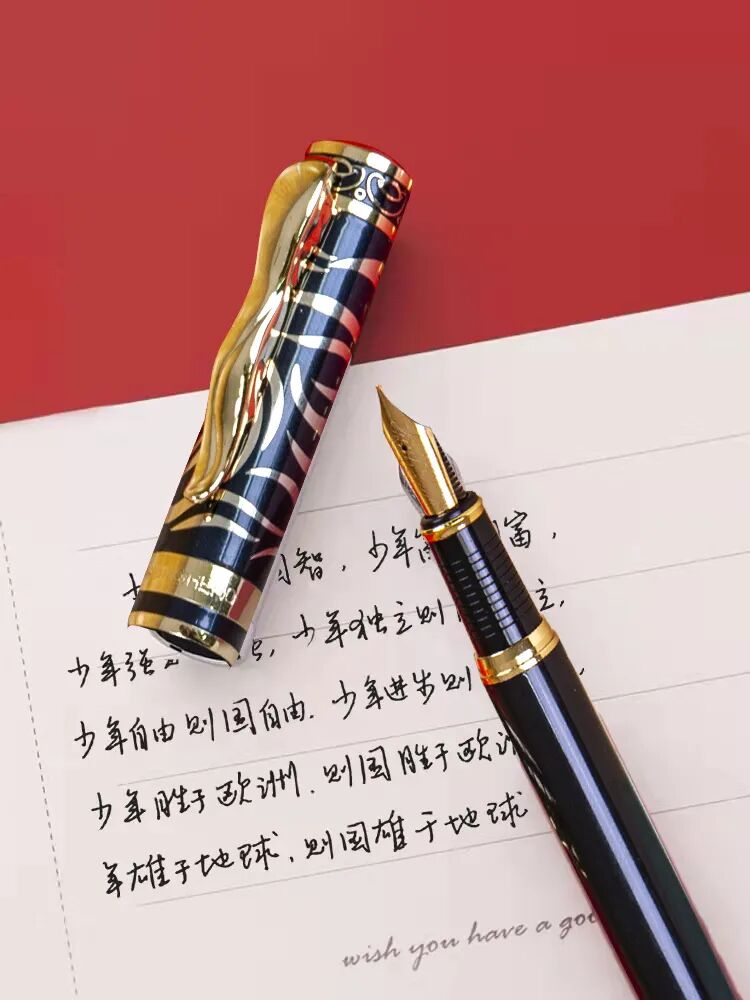 智，少年富，
少年强，少年独立则立，
少年自由则国自由．少年进步则
少年胜于欧洲．则国胜于欧洲
年雄于地球．则国雄于地球
wish you have a